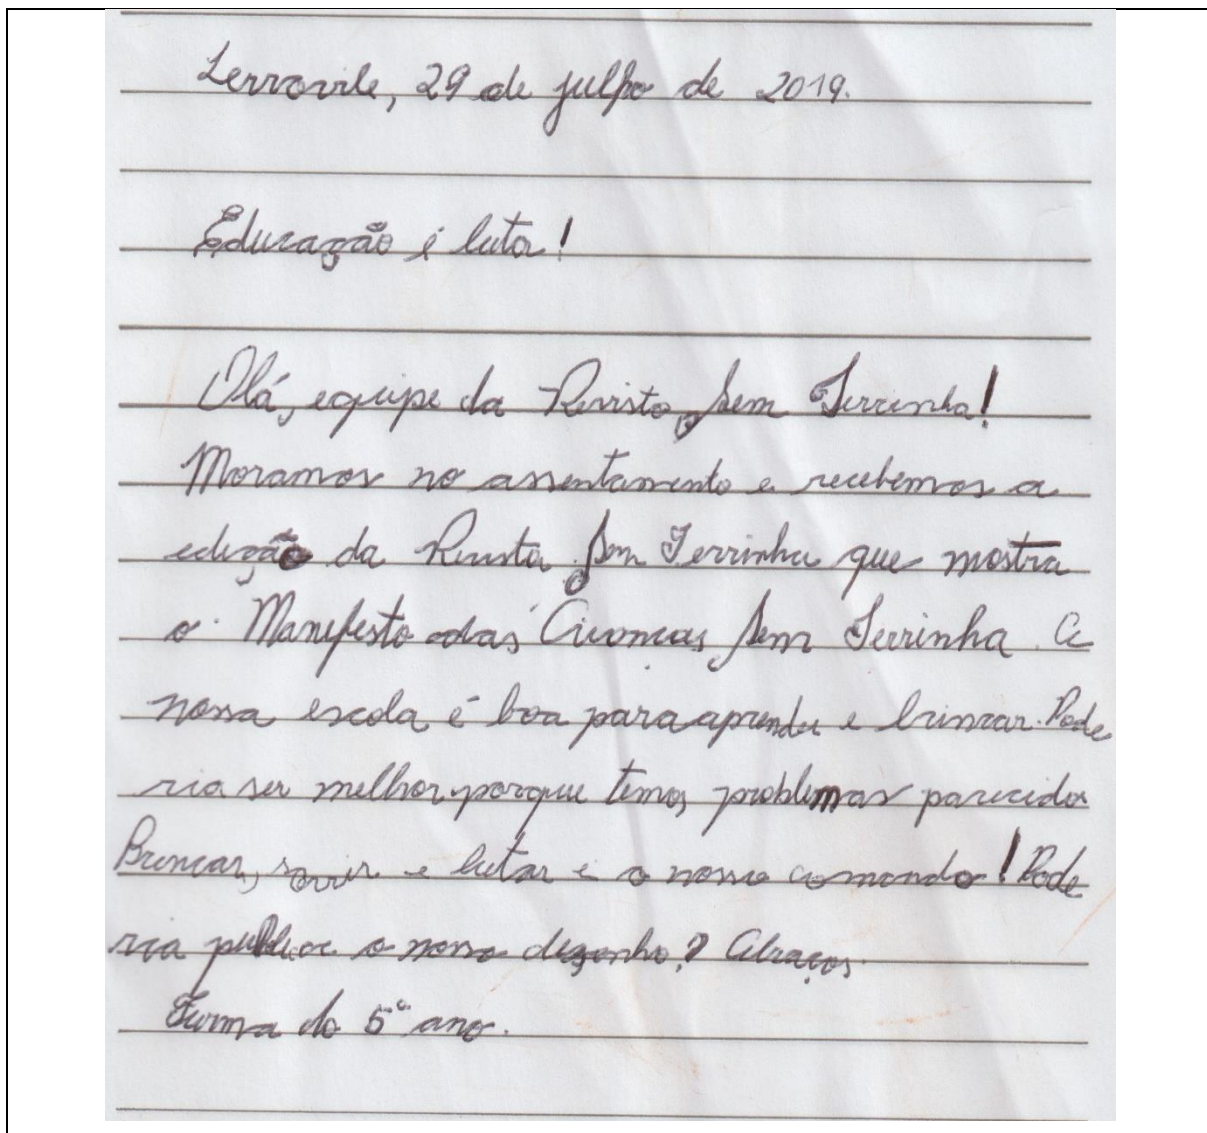 Lerrovile, 29 de julho de 2019.
Educação é luta!
Olá, equipe da Revista, Sem Terrinha!
Moramos no assentamento e recebemos a
edição da Revista Sem Terrinha que mostra
o Manifesto das Crianças Sem Terrinha. A
nossa escola é boa para aprender e brincar. Pode
ria ser melhor porque temos problemas parecidos
Brincar, sorrir e lutar é o nosso comando! Pode
ria publicar o nosso dezenho? Abraços.
Turma do 5º ano.